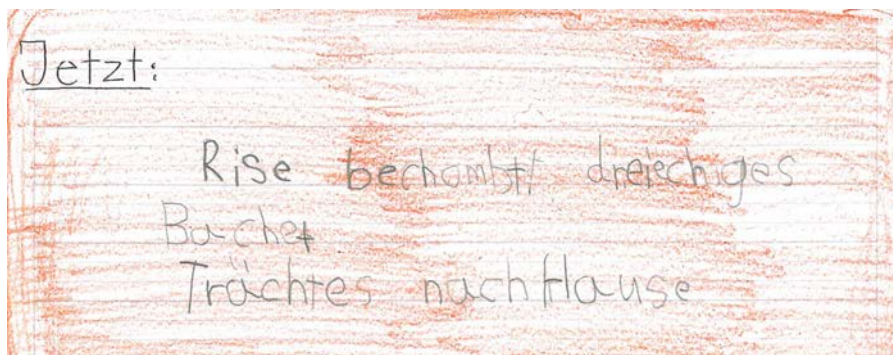 Jetzt:
Rise bechombt dreiechiges
Bachet
Trächtes nach Hause